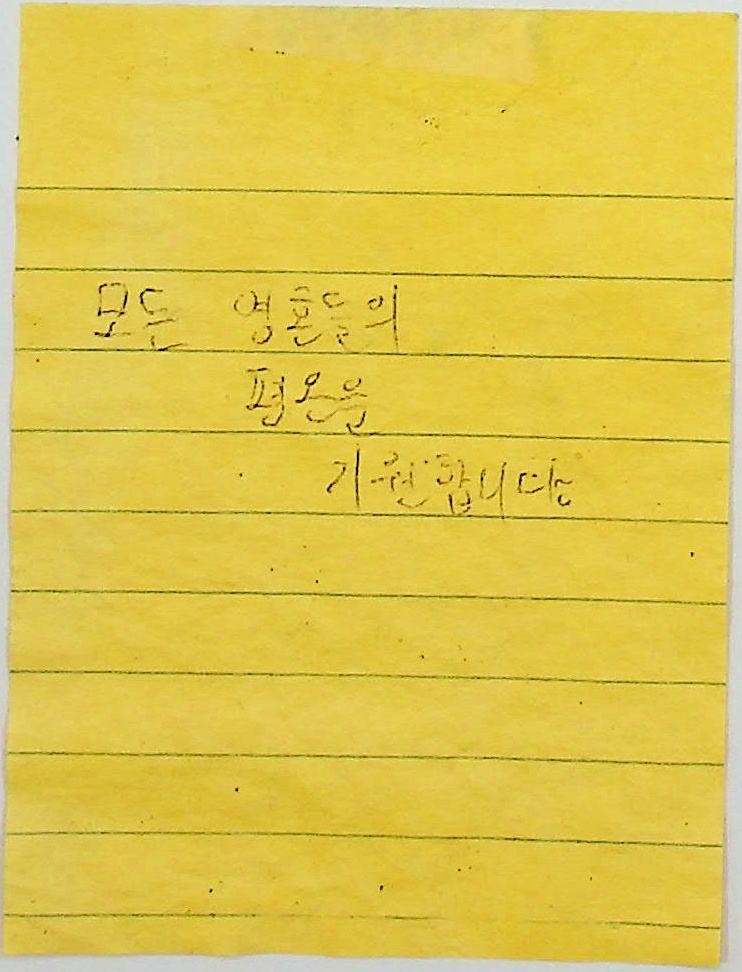 모든 영혼들의
평온을
기원합니다.